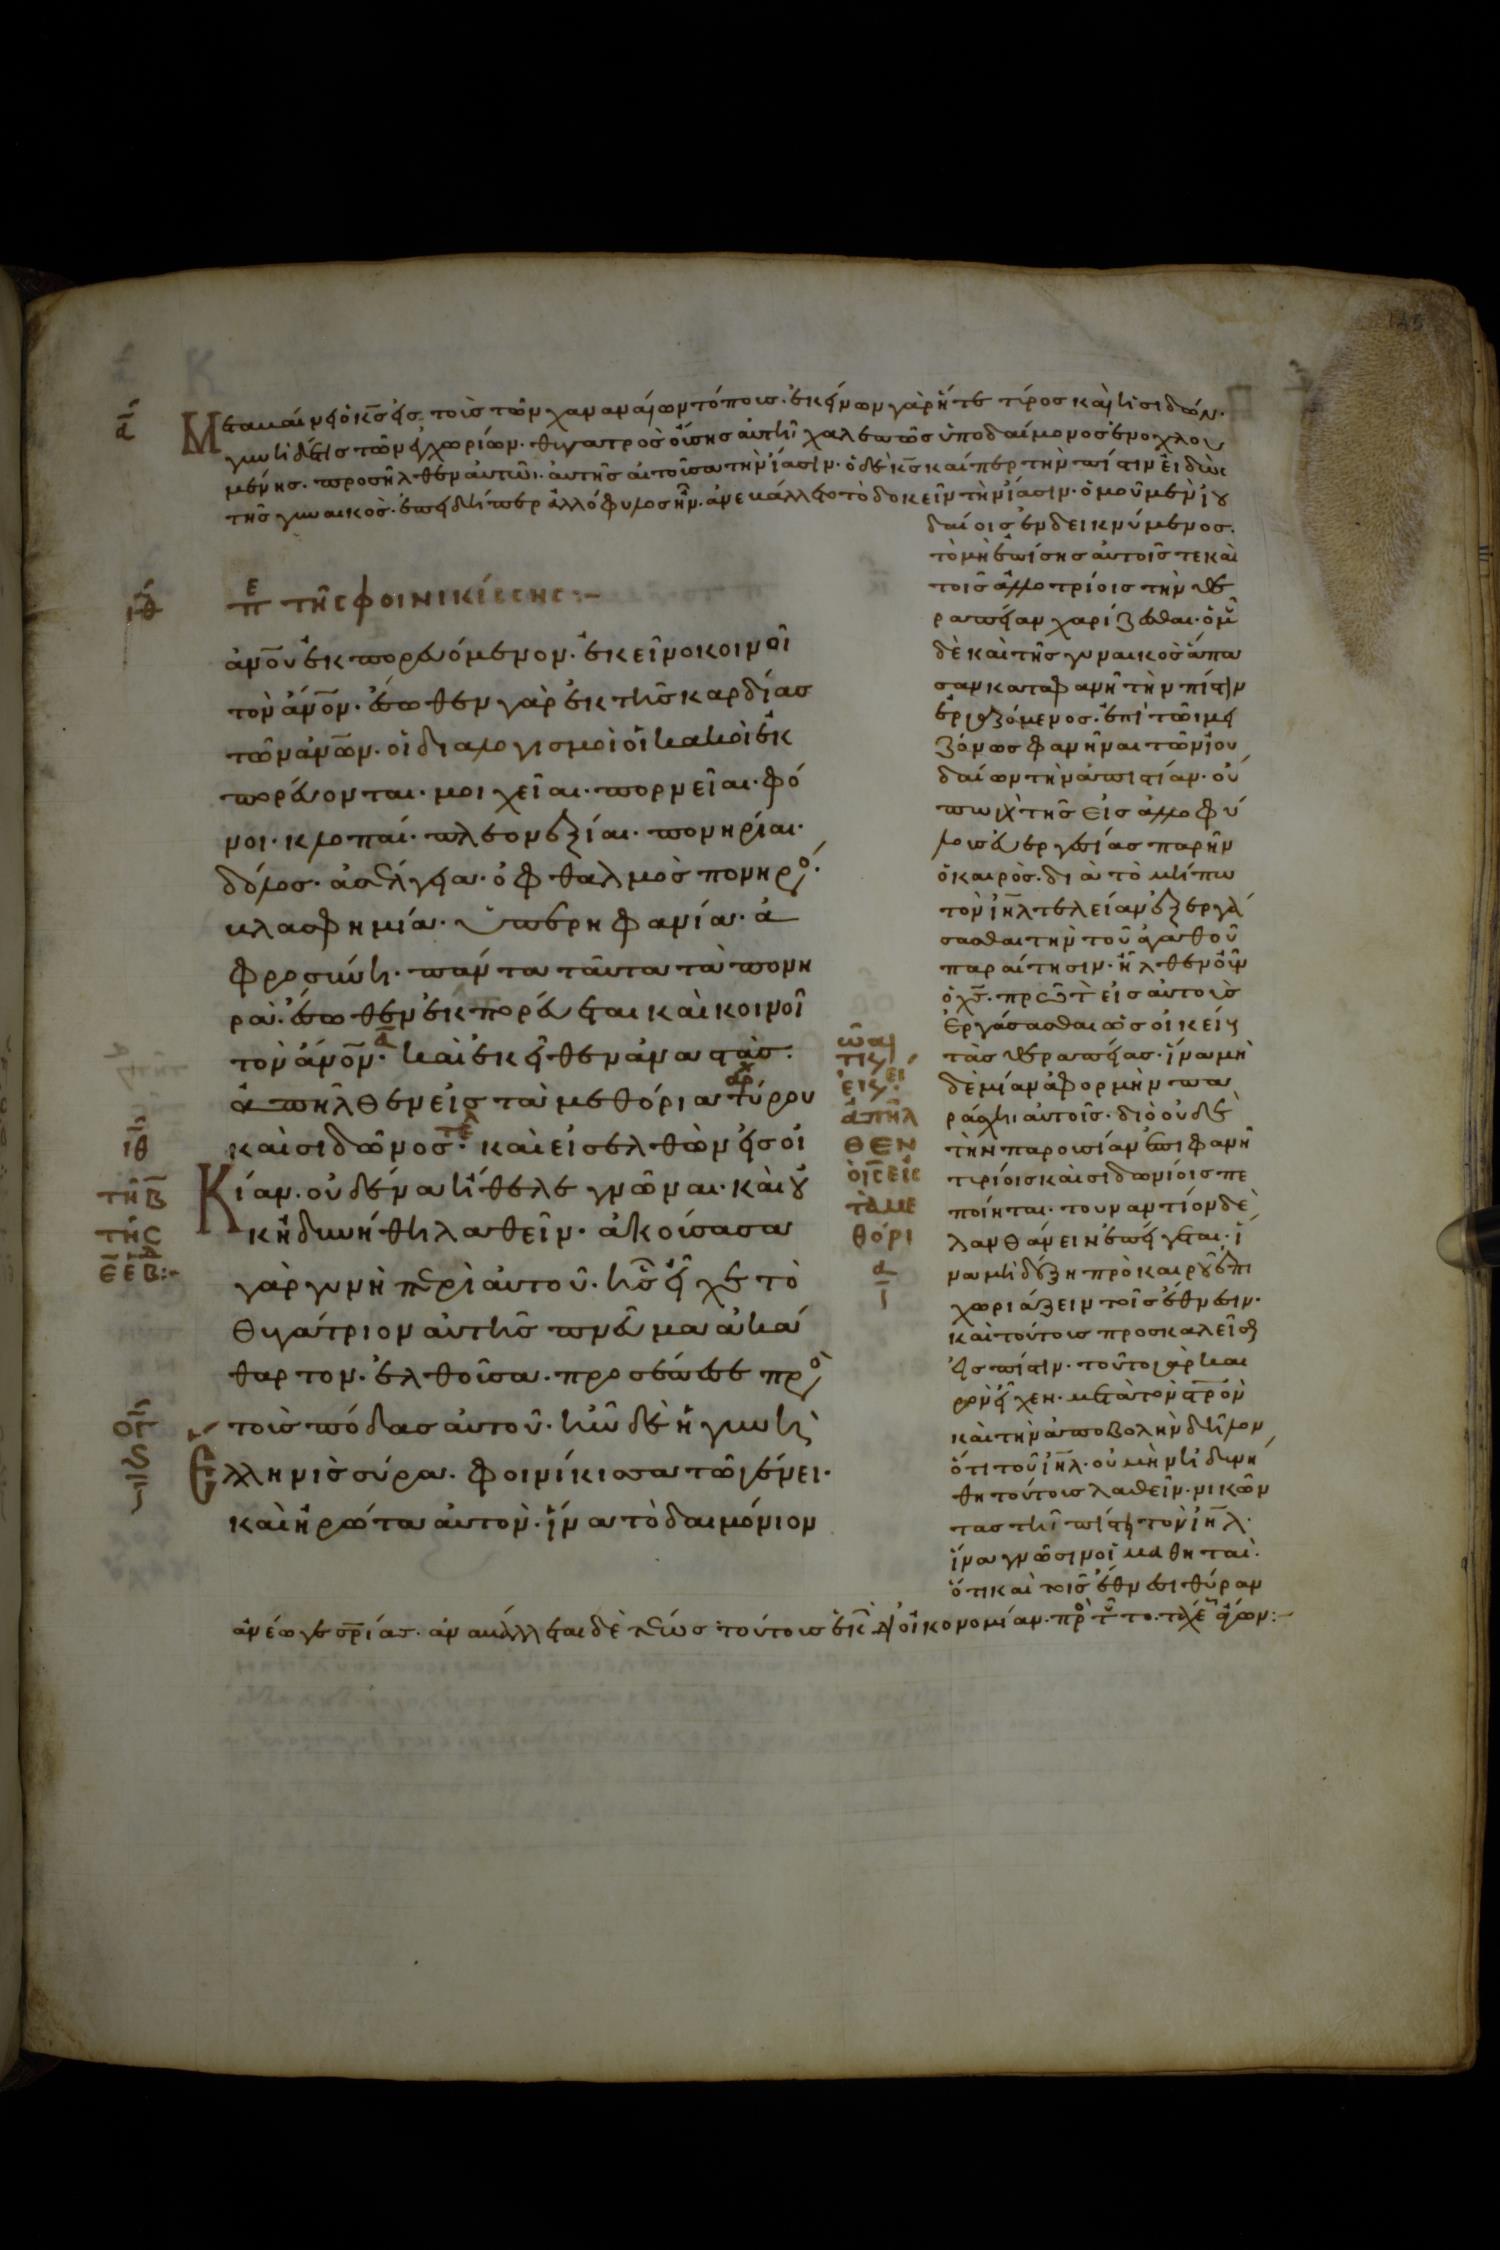 Μεταβαίνει ὁ κ̅ς̅ εἰς τοὺς τῶν χαναναίων τόπους. ἐκείνων γὰρ ἥτε τύρος καὶ ἡ σιδών.
γυνὴ δέ τις τῶν ἐγχωρίων. θυγατρὸς οὔσης αὐτῆ χαλεπῶς ὑπὸ δαίμονος ἐνοχλου
μένης. προσῆλθεν αὐτῶι. αὐτῆς αἰτοῦσα τὴν ἴασιν. ὁ δὲ κ̅ς̅ καίπερ τὴν πίστιν εἰδὼς
τῆς γυναικὸς. ἐπειδήπερ ἀλλόφυλος ἦν. ἀνεβάλλετο τὸ δοκεῖν τὴν ἴασιν. ὁμοῦ μὲν ἰου
ιθ
πε τῆς φοινικίσσης:~
α̅ν̅ο̅ν ἐκπορευόμενον. ἐκεῖνο κοινοῖ
τὸν α̅ν̅ο̅ν. ἔσωθεν γὰρ ἐκ τῆς καρδίας
τῶν α̅ν̅ω̅ν. οἱ διαλογισμοὶ οἱ κακοὶ ἐκ
πορεύονται. μοιχεῖαι. πορνεῖαι. φό
νοι. κλοπαί. πλεονεξίαι. πονηρίαι.
δόλος. ἀσέλγεια. ὀφθαλμὸς πονηρός.
βλασφημία. ὑπερηφανία. ἀ
φροσύνη. πάντα ταῦτα τὰ πονη
ρὰ. ἔσωθεν ἐκπορεύεται καὶ κοινοῖ
τὸν α̅ν̅ο̅ν. καὶ ἐκεῖθεν ἀναστὰς.
ἀπῆλθεν εἰς τὰ μεθόρια τύρου
καὶ σιδῶνος. καὶ εἰσελθὼν εἰς οἰ
κίαν. οὐδένα ἤθελε γνῶναι. καὶ οὐ
κ ἠδυνήθη λαθεῖν. ἀκούσασα
γὰρ γυνὴ περὶ αὐτοῦ. ἧς εἶχε τὸ
θυγάτριον αὐτῆς πνεῦμα ἀκά
θαρτον. ἐλθοῦσα. προσέπεσε πρὸς
τοὺς πόδας αὐτοῦ. ἦν δὲ ἡ γυνὴ
Ελληνὶς σύρα. φοινίκισσα τῶ γένει.
καὶ ἠρώτα αὐτὸν. ἵνα τὸ δαιμόνιον
ιθ
τῆ β̅
τῆς
ο̅γ̅
ς̅
ι̅
ἀπῆλ
θεν
ὁ ι̅ς̅ εἰς
τὰ με
θόρι
α
δαίοις ἐνδεικνύμενος.
τὸ μὴ ἐπίσης αὐτοῖς τε καὶ
τοῖς ἀλλοτρίοις τὴν θε
ραπείαν χαρίζεσθαι. ὁμοῦ
δὲ καὶ τῆς γυναικὸς ἅπα
σαν καταφανῆ τὴν πίστιν
ἐργαζόμενος. ἐπὶ τῶι μεί
ζόνως φανῆναι τῶν ἰου
δαίων τὴν ἀπιστίαν. οὔ
πω γὰρ τῆς εἰς ἀλλοφύ
λους εὐεργεσίας παρῆν
ὁ καιρὸς. διὰ τὸ μήπω
τὸν ι̅η̅λ̅ τελείαν ἐξεργά
σασθαι τὴν τοῦ ἀγαθοῦ
παραίτησιν. ἦλθεν οὖν
ὁ χ̅ς̅. πρῶτον εἰς αὐτοὺς
ἐργάσασθαι ὡς οἰκείους
τὰς θεραπείας. ἵνα μη
δεμίαν ἀφορμὴν πα
ράσχη αὐτοῖς. διὸ οὐδὲ
τὴν παρουσίαν ἐπιφανῆ
τυρίοις καὶ σιδωνίοις πε
ποίηται. τουναντίον δὲ
λανθάνειν ἐπείγεται. ἵ
να μὴ δόξη πρὸ καιροῦ ἐπι
χωριάζειν τοῖς ἔθνεσιν.
καὶ τούτους προσκαλεῖσθαι
εἰς πίστιν. τοῦτο γὰρ και
ρὸν εἶχεν. μετὰ τὸν στ̅ρ̅ὸν
καὶ τὴν ἀποβολὴν δηλον
ότι τοῦ ι̅η̅λ̅. οὐ μὴν ἠδυνή
θη τούτους λαθεῖν. νικῶν
τας τῆ πίστει τὸν ι̅η̅λ̅.
ἵνα γνῶσιν οἱ μαθηταὶ.
ὅτι καὶ τοῖς ἔθνεσι θύραν
ἀνέωγε σ̅ρ̅ίας. ἀναβάλλεται δὲ τέως τούτους